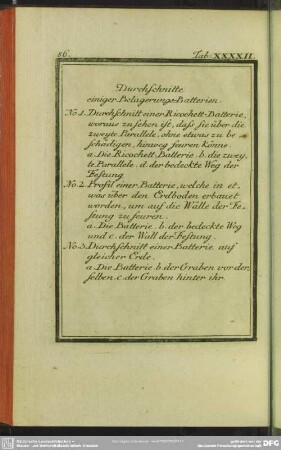 86. Tab. XXXXII.
Durchschnitte
einiger Belagerungs-Batterien
No 1. Durchschnitt einer Ricochett-Batterie,
woraus zu sehen ist, dass sie über die
zweyte Parallele, ohne etwas zu be
schädigen, hinweg feuren könne.
a. Die Ricochett-Batterie. b. die zwey,
te Parallele. d. der bedeckte Weg der
Festung
No 2. Profil einer Batterie, welche in et,
was über den Erdboden erbauet
worden, um auf die Wälle der Fe,
stung zu feuren.
a. Die Batterie. b. der bedeckte Weg
und c. der Wall der Festung.
No 3. Durchschnitt einer Batterie auf
gleicher Erde.
a. Die Batterie. b. der Graben vor der,
selben. c. der Graben hinter ihr.
DFG